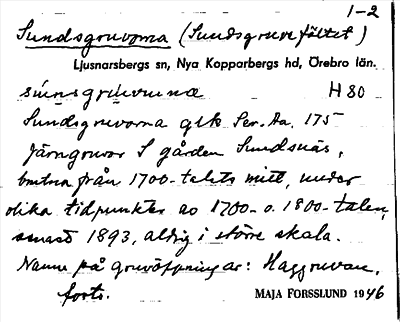 1-2
Sundsgruvorna (Sundsgruvefältet)
Ljusnarsbergs sn, Nya Kopparbergs hd, Örebro län.
H 80
Sundsgruvorna gtk Ser. Aa. 175
Järngruvor S gården Sundsnäs,
brutna från 1700-talets mitt, under
olika tidpunkter av 1700- o. 1800-talen,
senast 1893, aldrig i större skala.
Namn på gruvöppningar: Haggruvan,
forts. MAJA FORSSLUND 1946